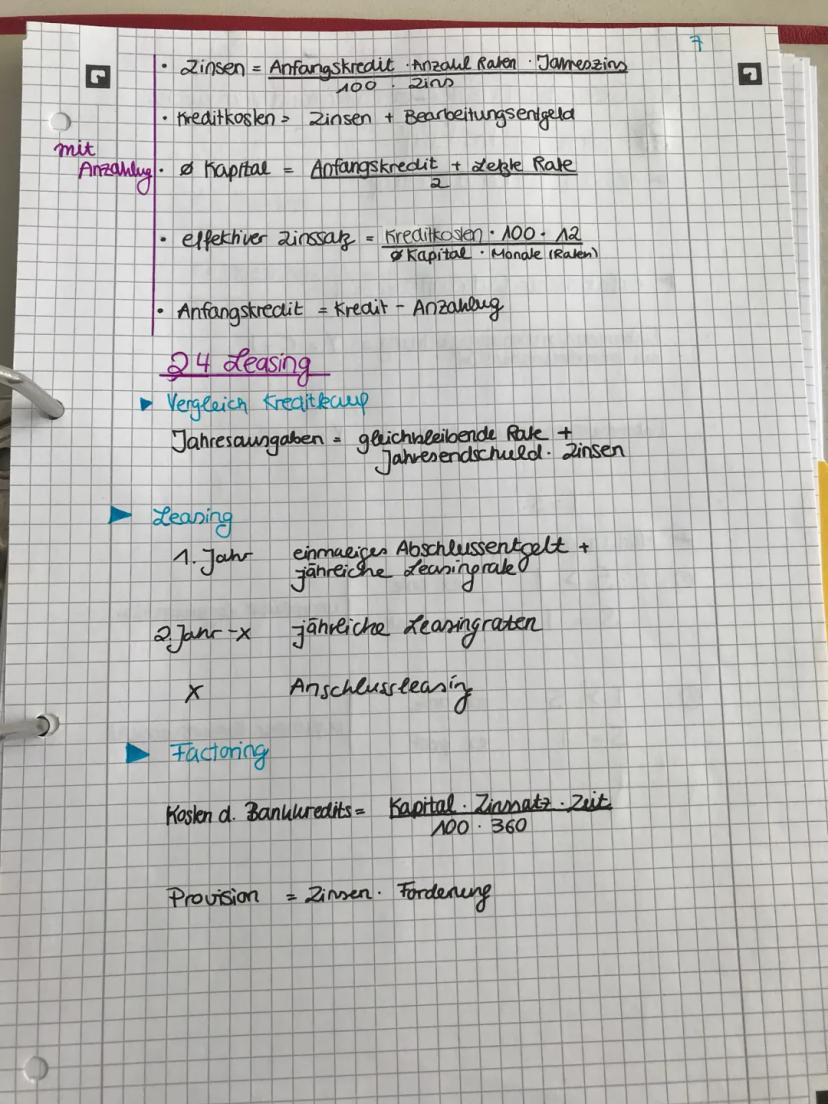 7
• Zinsen = Anfangskredit · Anzahl Raten · Jahreszins
100 · Zins
• Kreditkosten = Zinsen + Bearbeitungsentgeld
mit
Anzahlug
• Ø Kapital = Anfangskredit + Letzte Rate
2
• effektiver Zinssatz = Kreditkosten · 100 · 12
Ø Kapital · Monate (Raten)
• Anfangskredit = Kredit - Anzahlug
24 Leasing
▸ Vergleich Kreditkauf
Jahresausgaben = gleichbleibende Rate +
Jahresendschuld · Zinsen
▸ Leasing
1. Jahr einmaliges Abschlussentgelt +
jährliche Leasingrate
2. Jahr - x jährliche Leasingraten
x Anschlussleasing
▸ Factoring
Kosten d. Bankkredits = Kapital · Zinssatz · Zeit
100 · 360
Provision = Zinsen · Forderung